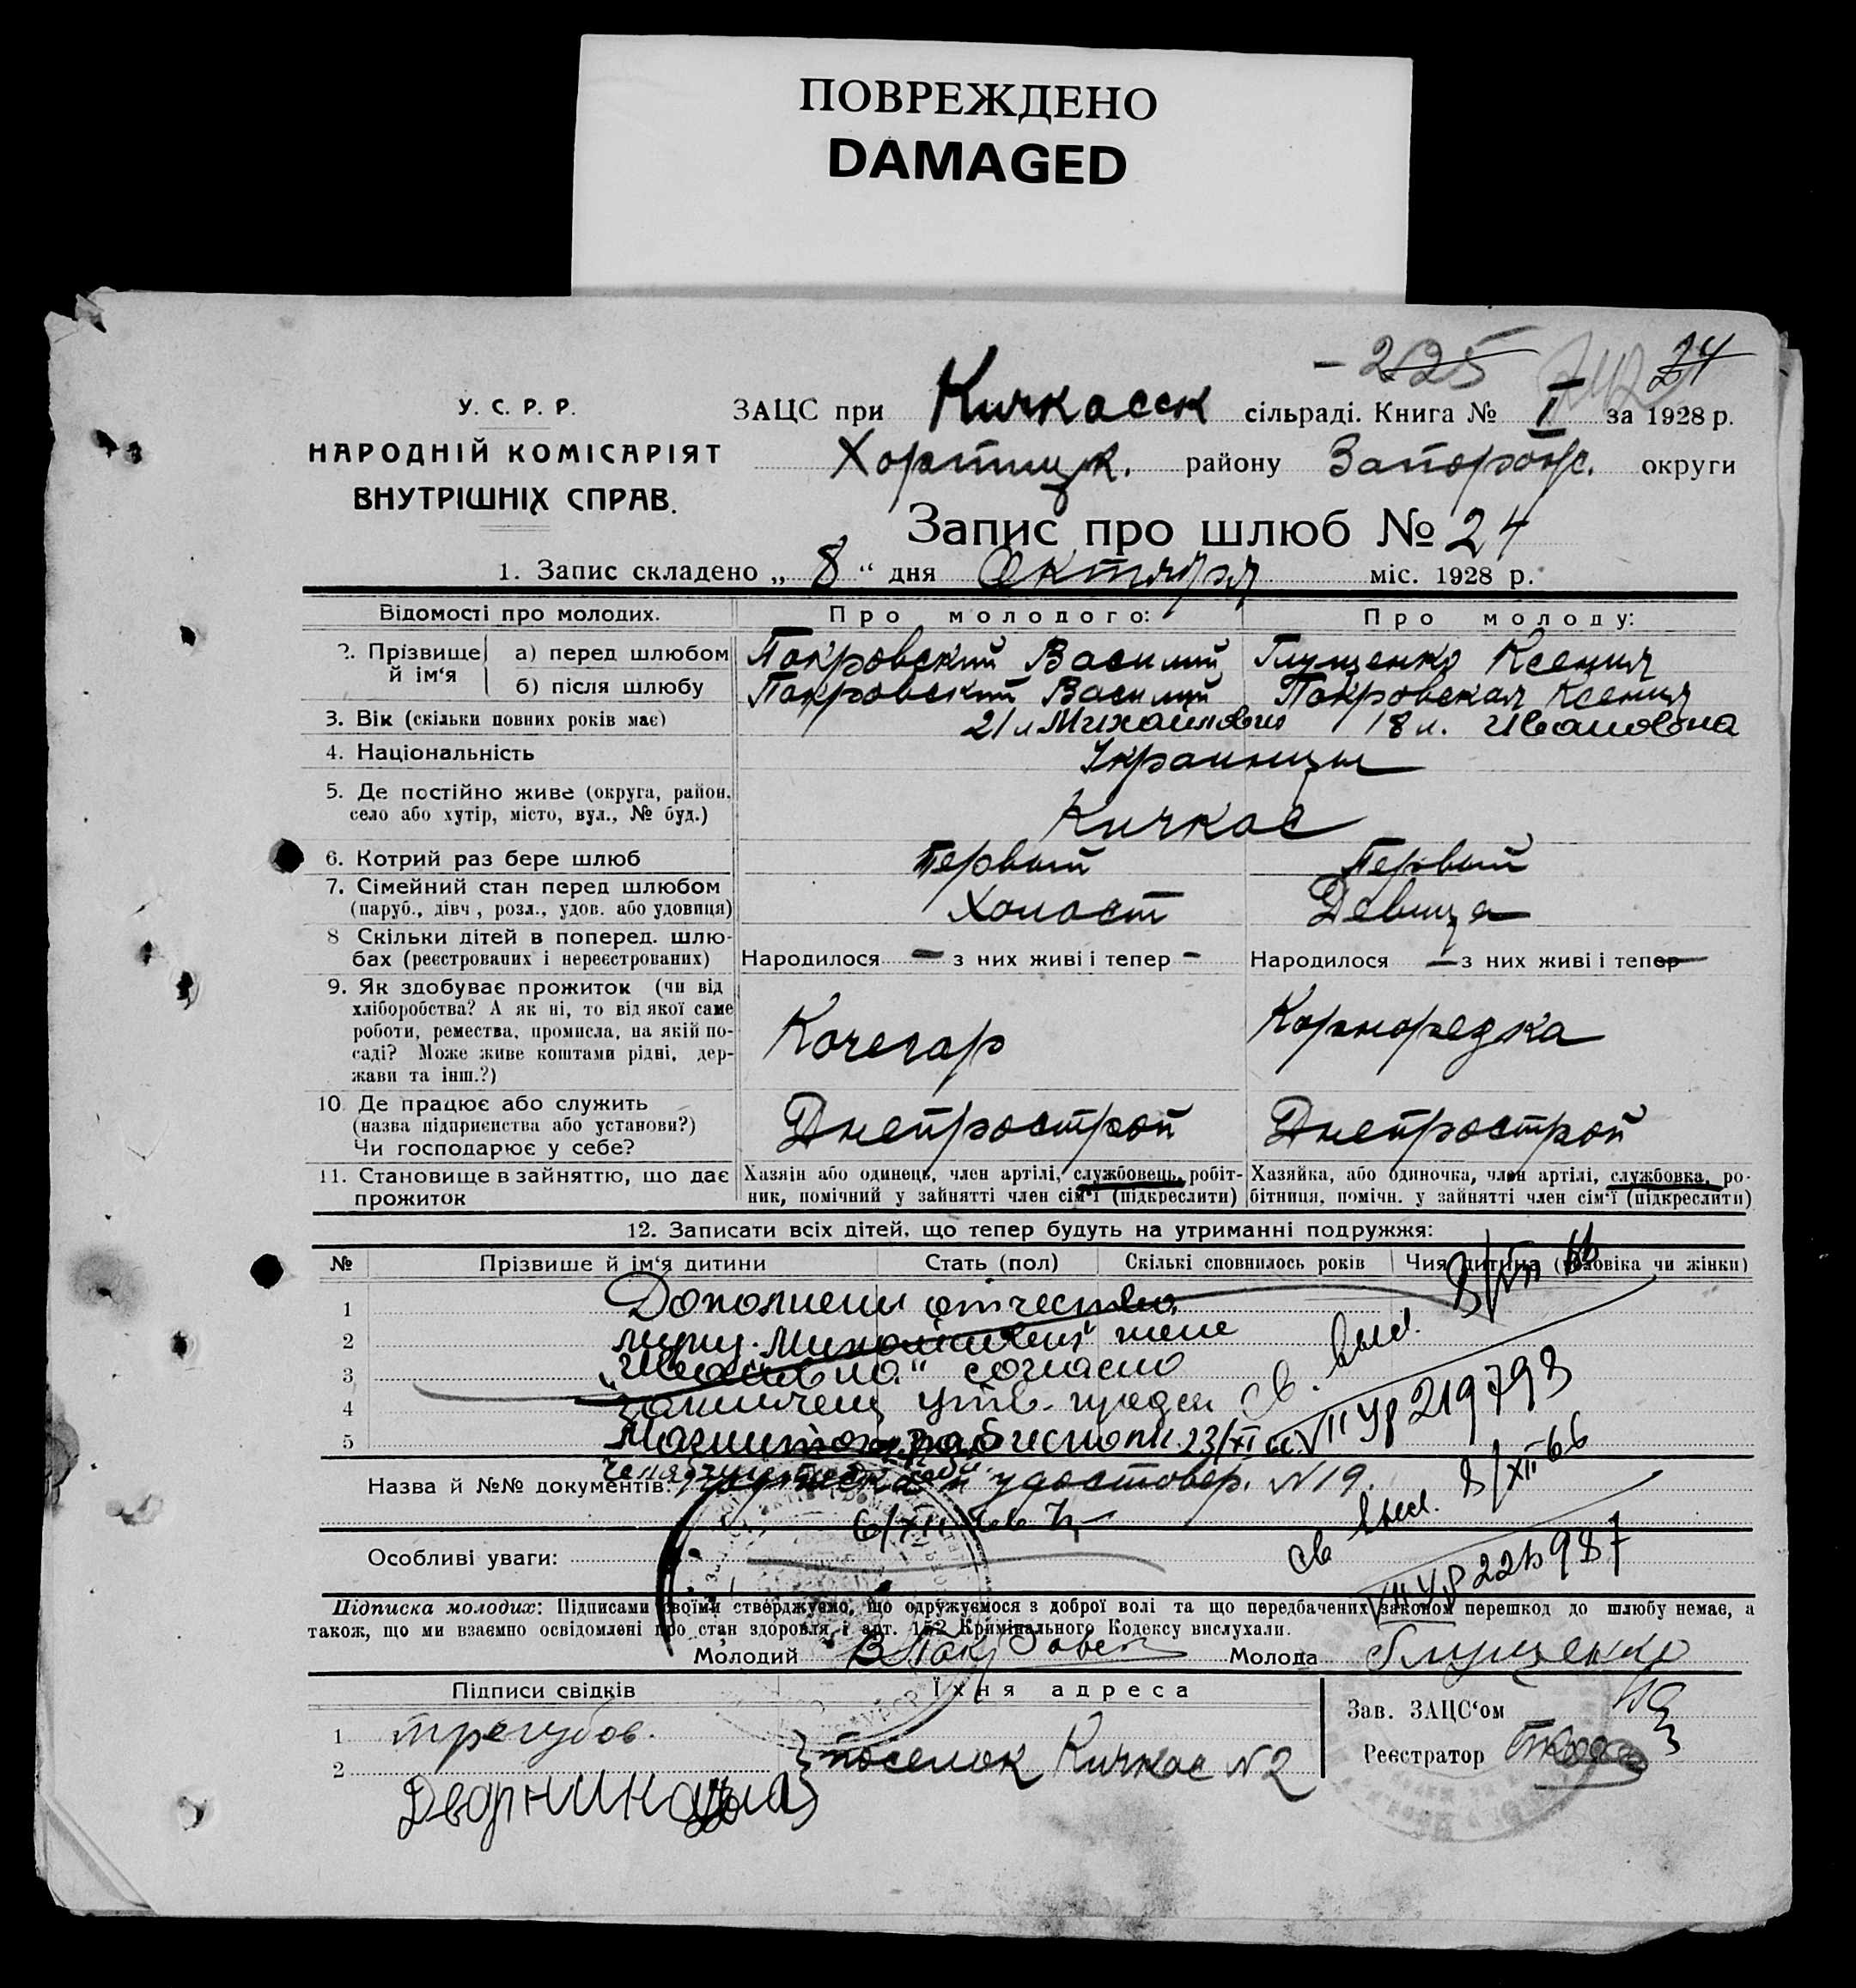 ПОВРЕЖДЕНО
DAMAGED
- 225 24
У. С. Р. Р.
НАРОДНІЙ КОМІСАРІЯТ
ВНУТРІШНІХ СПРАВ.
ЗАЦС при Кичкасск сільраді. Книга № I за 1928 р.
Хортицк. району Запорож. округи
Запис про шлюб № 24
1. Запис складено „ 8 “ дня Октября міс. 1928 р.
Відомості про молодих. Про молодого: Про молоду:
2. Прізвище й ім‘я а) перед шлюбом Покровский Василий Глущенко Ксения
б) після шлюбу Покровский Василий Покровская Ксения
3. Вік (скільки повних років має) 21 л Михайлович 18 л. Ивановна
4. Національність Украинцы
5. Де постійно живе (округа, район, село або хутір, місто, вул., № буд.) Кичкас
6. Котрий раз бере шлюб Первый Первый
7. Сімейний стан перед шлюбом Холост Девица
(паруб., дівч., розл., удов. або удовиця)
8 Скільки дітей в поперед. шлю-
бах (реєстрованих і нереєстрованих) Народилося — з них живі і тепер - Народилося — з них живі і тепер
9. Як здобуває прожиток (чи від
хліборобства? А як ні, то від якої саме
роботи, ремества, промисла, на якій по-
саді? Може живе коштами рідні, дер-
жави та інш.?)
Кочегар Корнорезка
10. Де працює або служить
(назва підприємства або установи?)
Чи господарює у себе?
Днепрострой Днепрострой
11. Становище в зайняттю, що дає
прожиток
Хазяін або одинець, член артілі, службовець, робіт-
ник, помічний у зайнятті член сім‘ї (підкреслити)
Хазяйка, або одиночка, член артілі, службовка, ро-
бітниця, помічн. у зайнятті член сім‘ї (підкреслити)
12. Записати всіх дітей, що тепер будуть на утриманні подружжя:
№ Прізвише й ім‘я дитини Стать (пол) Скількі сповнилось років Чия дитина (чоловіка чи жінки)
1 Дополнены отчество
2 мужу жене
3 „Ивановна“ согласно
4
5 23/XI
св. выд. 8/XII 66
VII УР 219793
Назва й №№ документів: удостовер. N 19.
6/XII
св выд. 8/XII-66
Особливі уваги:
Підписка молодих: Підписами своїми стверджуємо, що одружуємося з доброї волі та що передбачених законом перешкод до шлюбу немає, а
також, що ми взаємно освідомлені про стан здоровля і арт. 152 Кримінального Кодексу вислухали.
Молодий Молода Глущенко
Підписи свідків Їхня адреса
Зав. ЗАЦС‘ом
1 Трегубов.
2
поселок Кичкас N2
Реєстратор